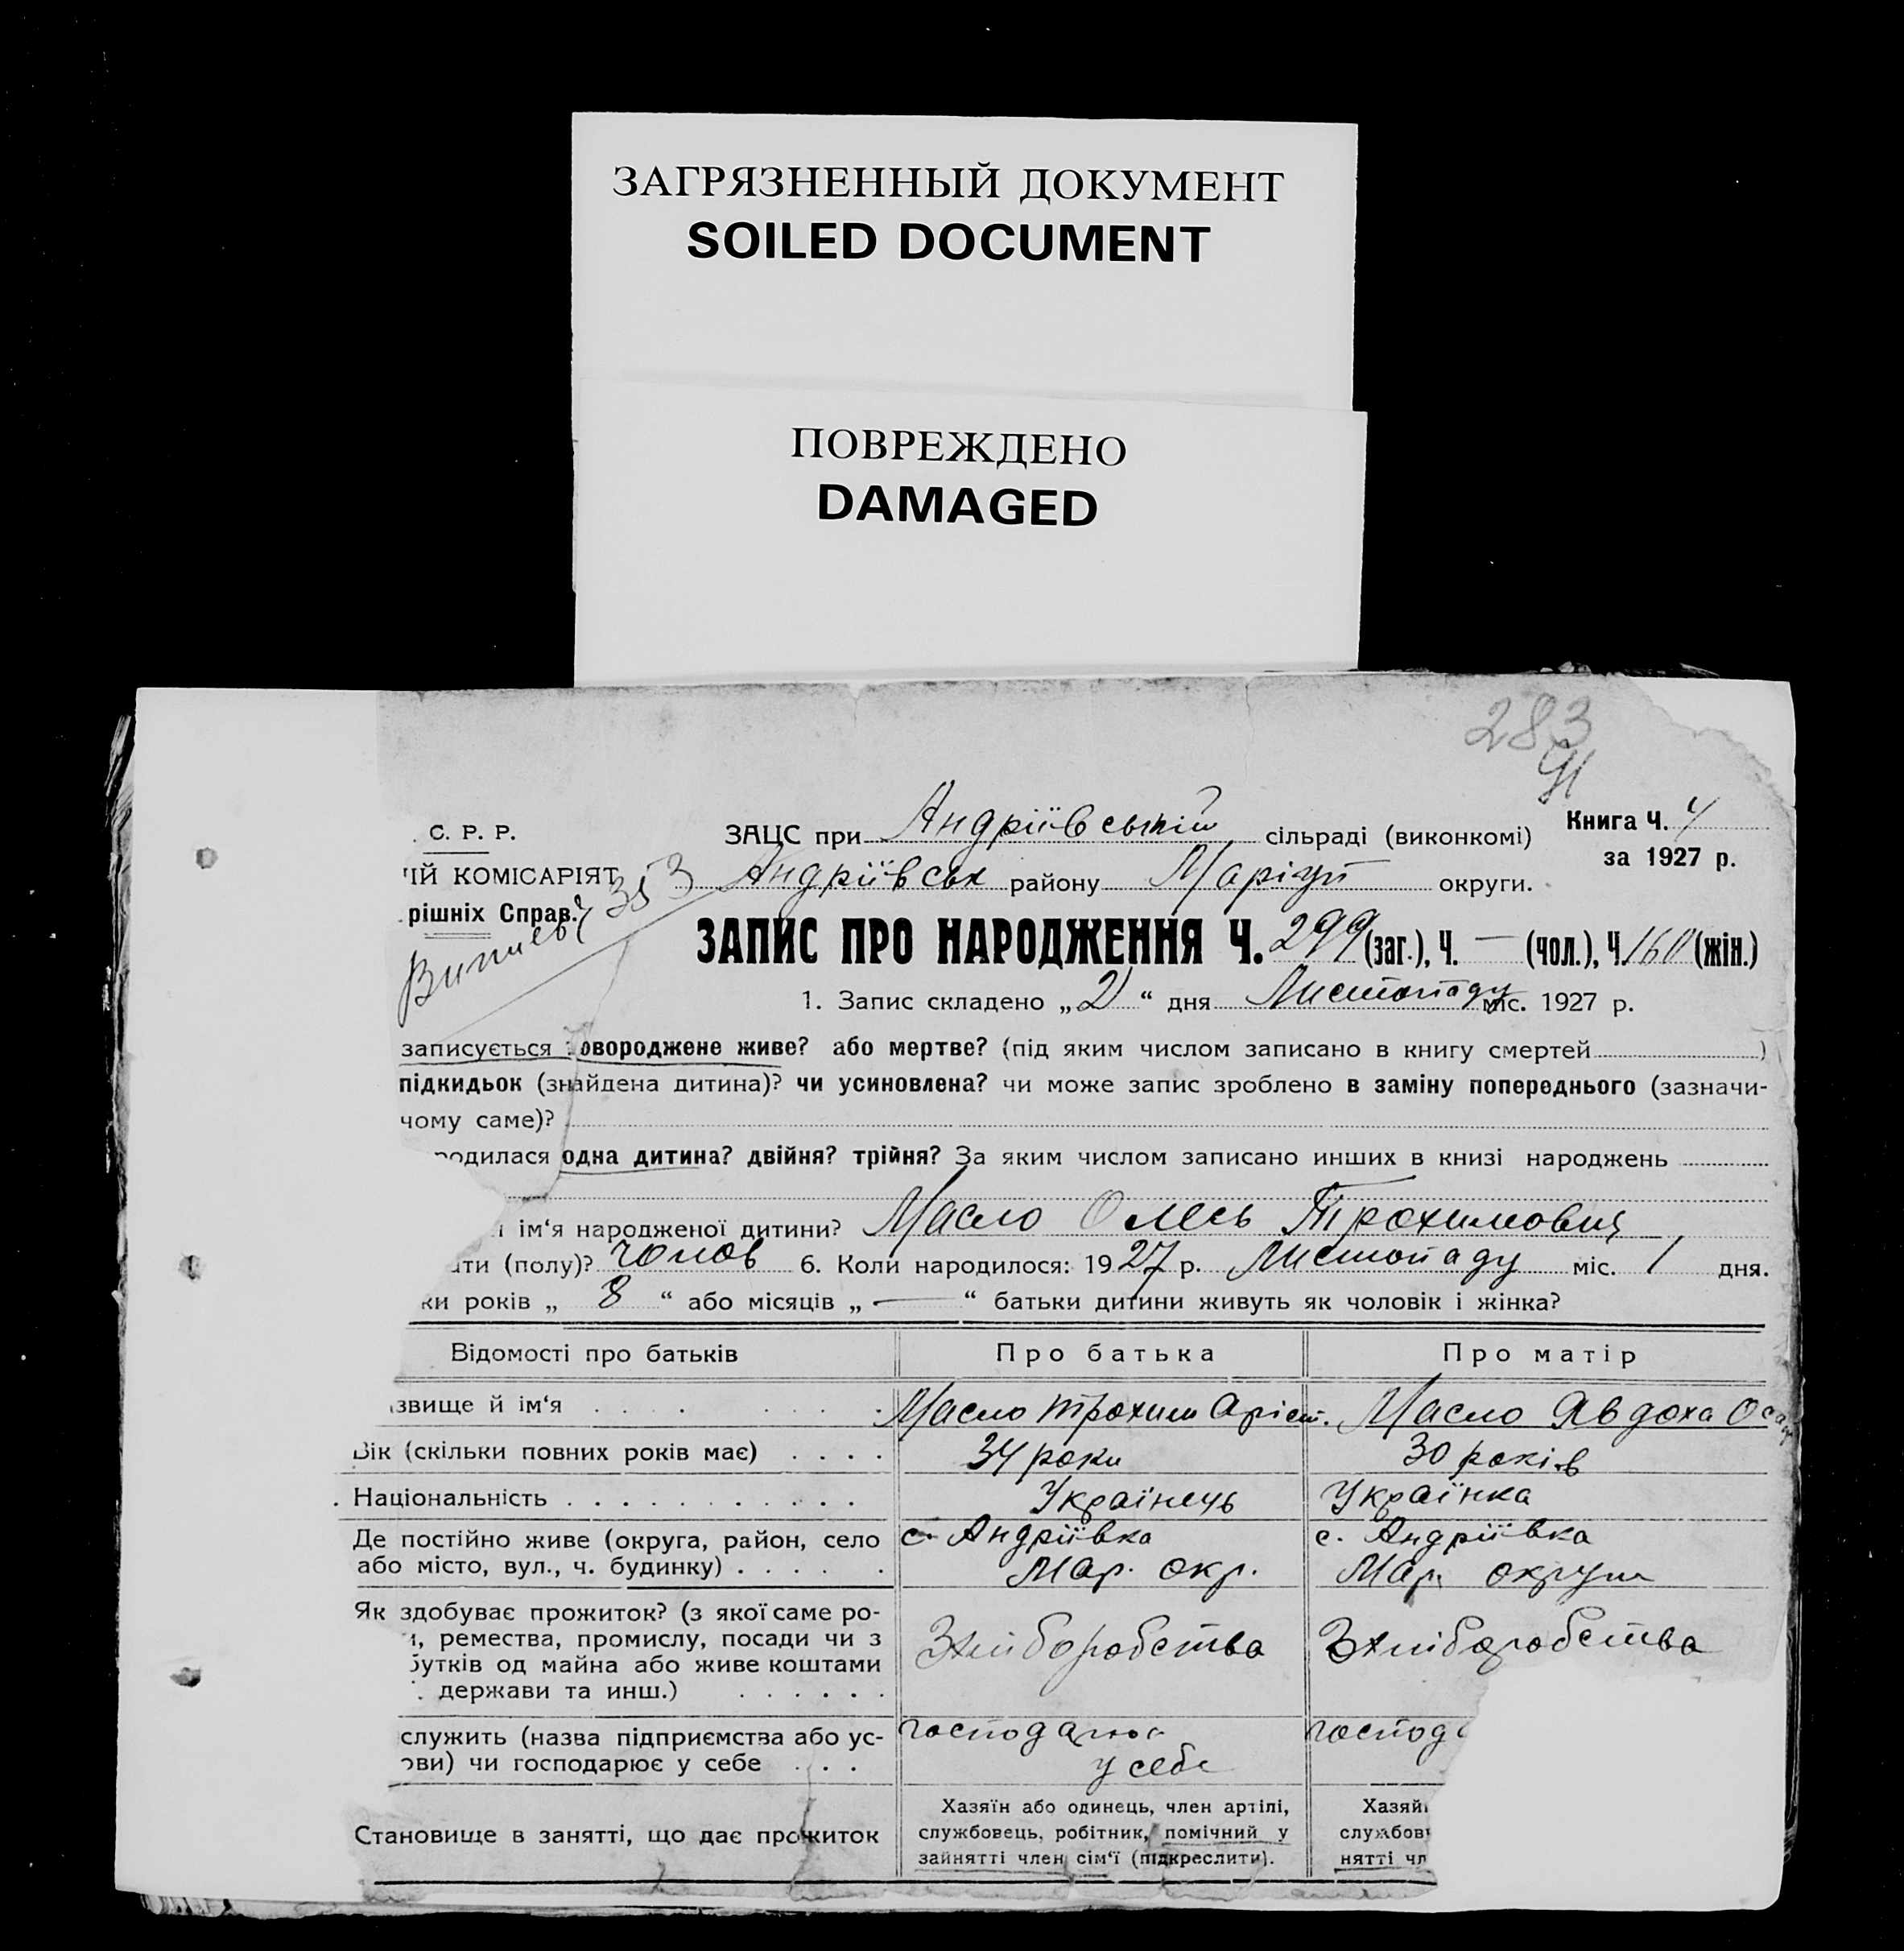 ЗАГРЯЗНЕННЫЙ ДОКУМЕНТ
SOILED DOCUMENT
ПОВРЕЖДЕНО
DAMAGED
283
91
С. Р. Р.
ЗАЦС при Андріївській сільраді (виконкомі)
Книга Ч. 4
за 1927 р.
ІЙ КОМІСАРІЯТ
Андріївськ району Маріуп округи.
рішніх Справ.
353
ЗАПИС ПРО НАРОДЖЕННЯ Ч. 299 (заг.), Ч. — (чол.), Ч. 160 (жін.)
1. Запис складено „2“ дня Листопаду міс. 1927 р.
записується новороджене живе? або мертве? (під яким числом записано в книгу смертей )
підкидьок (знайдена дитина)? чи усиновлена? чи може запис зроблено в заміну попереднього (зазначи-
чому саме)?
родилася одна дитина? двійня? трійня? За яким числом записано инших в книзі народжень
ім‘я народженої дитини? Масло Олесь Трохимович
ати (полу)? чолов 6. Коли народилося: 1927 р. Листопаду міс. 1 дня.
ки років „ 8 “ або місяців „ — “ батьки дитини живуть як чоловік і жінка?
Відомості про батьків Про батька Про матір
звище й ім‘я Масло Трохим Аріст. Масло Явдоха
Вік (скільки повних років має) 34 роки 30 років
Національність Українець Українка
Де постійно живе (округа, район, село с. Андріївка с. Андріївка
або місто, вул., ч. будинку) Мар. окр. Мар. округи
Як здобуває прожиток? (з якої саме ро-
и, ремества, промислу, посади чи з Зхліборобства Зхліборобства
бутків од майна або живе коштами
держави та инш.)
служить (назва підприємства або ус- господарює господ
ови) чи господарює у себе у себе
Хазяїн або одинець, член артілі, Хазяй
Становище в занятті, що дає прожиток службовець, робітник, помічний у службов
зайнятті член сім‘ї (підкреслити). нятті чл